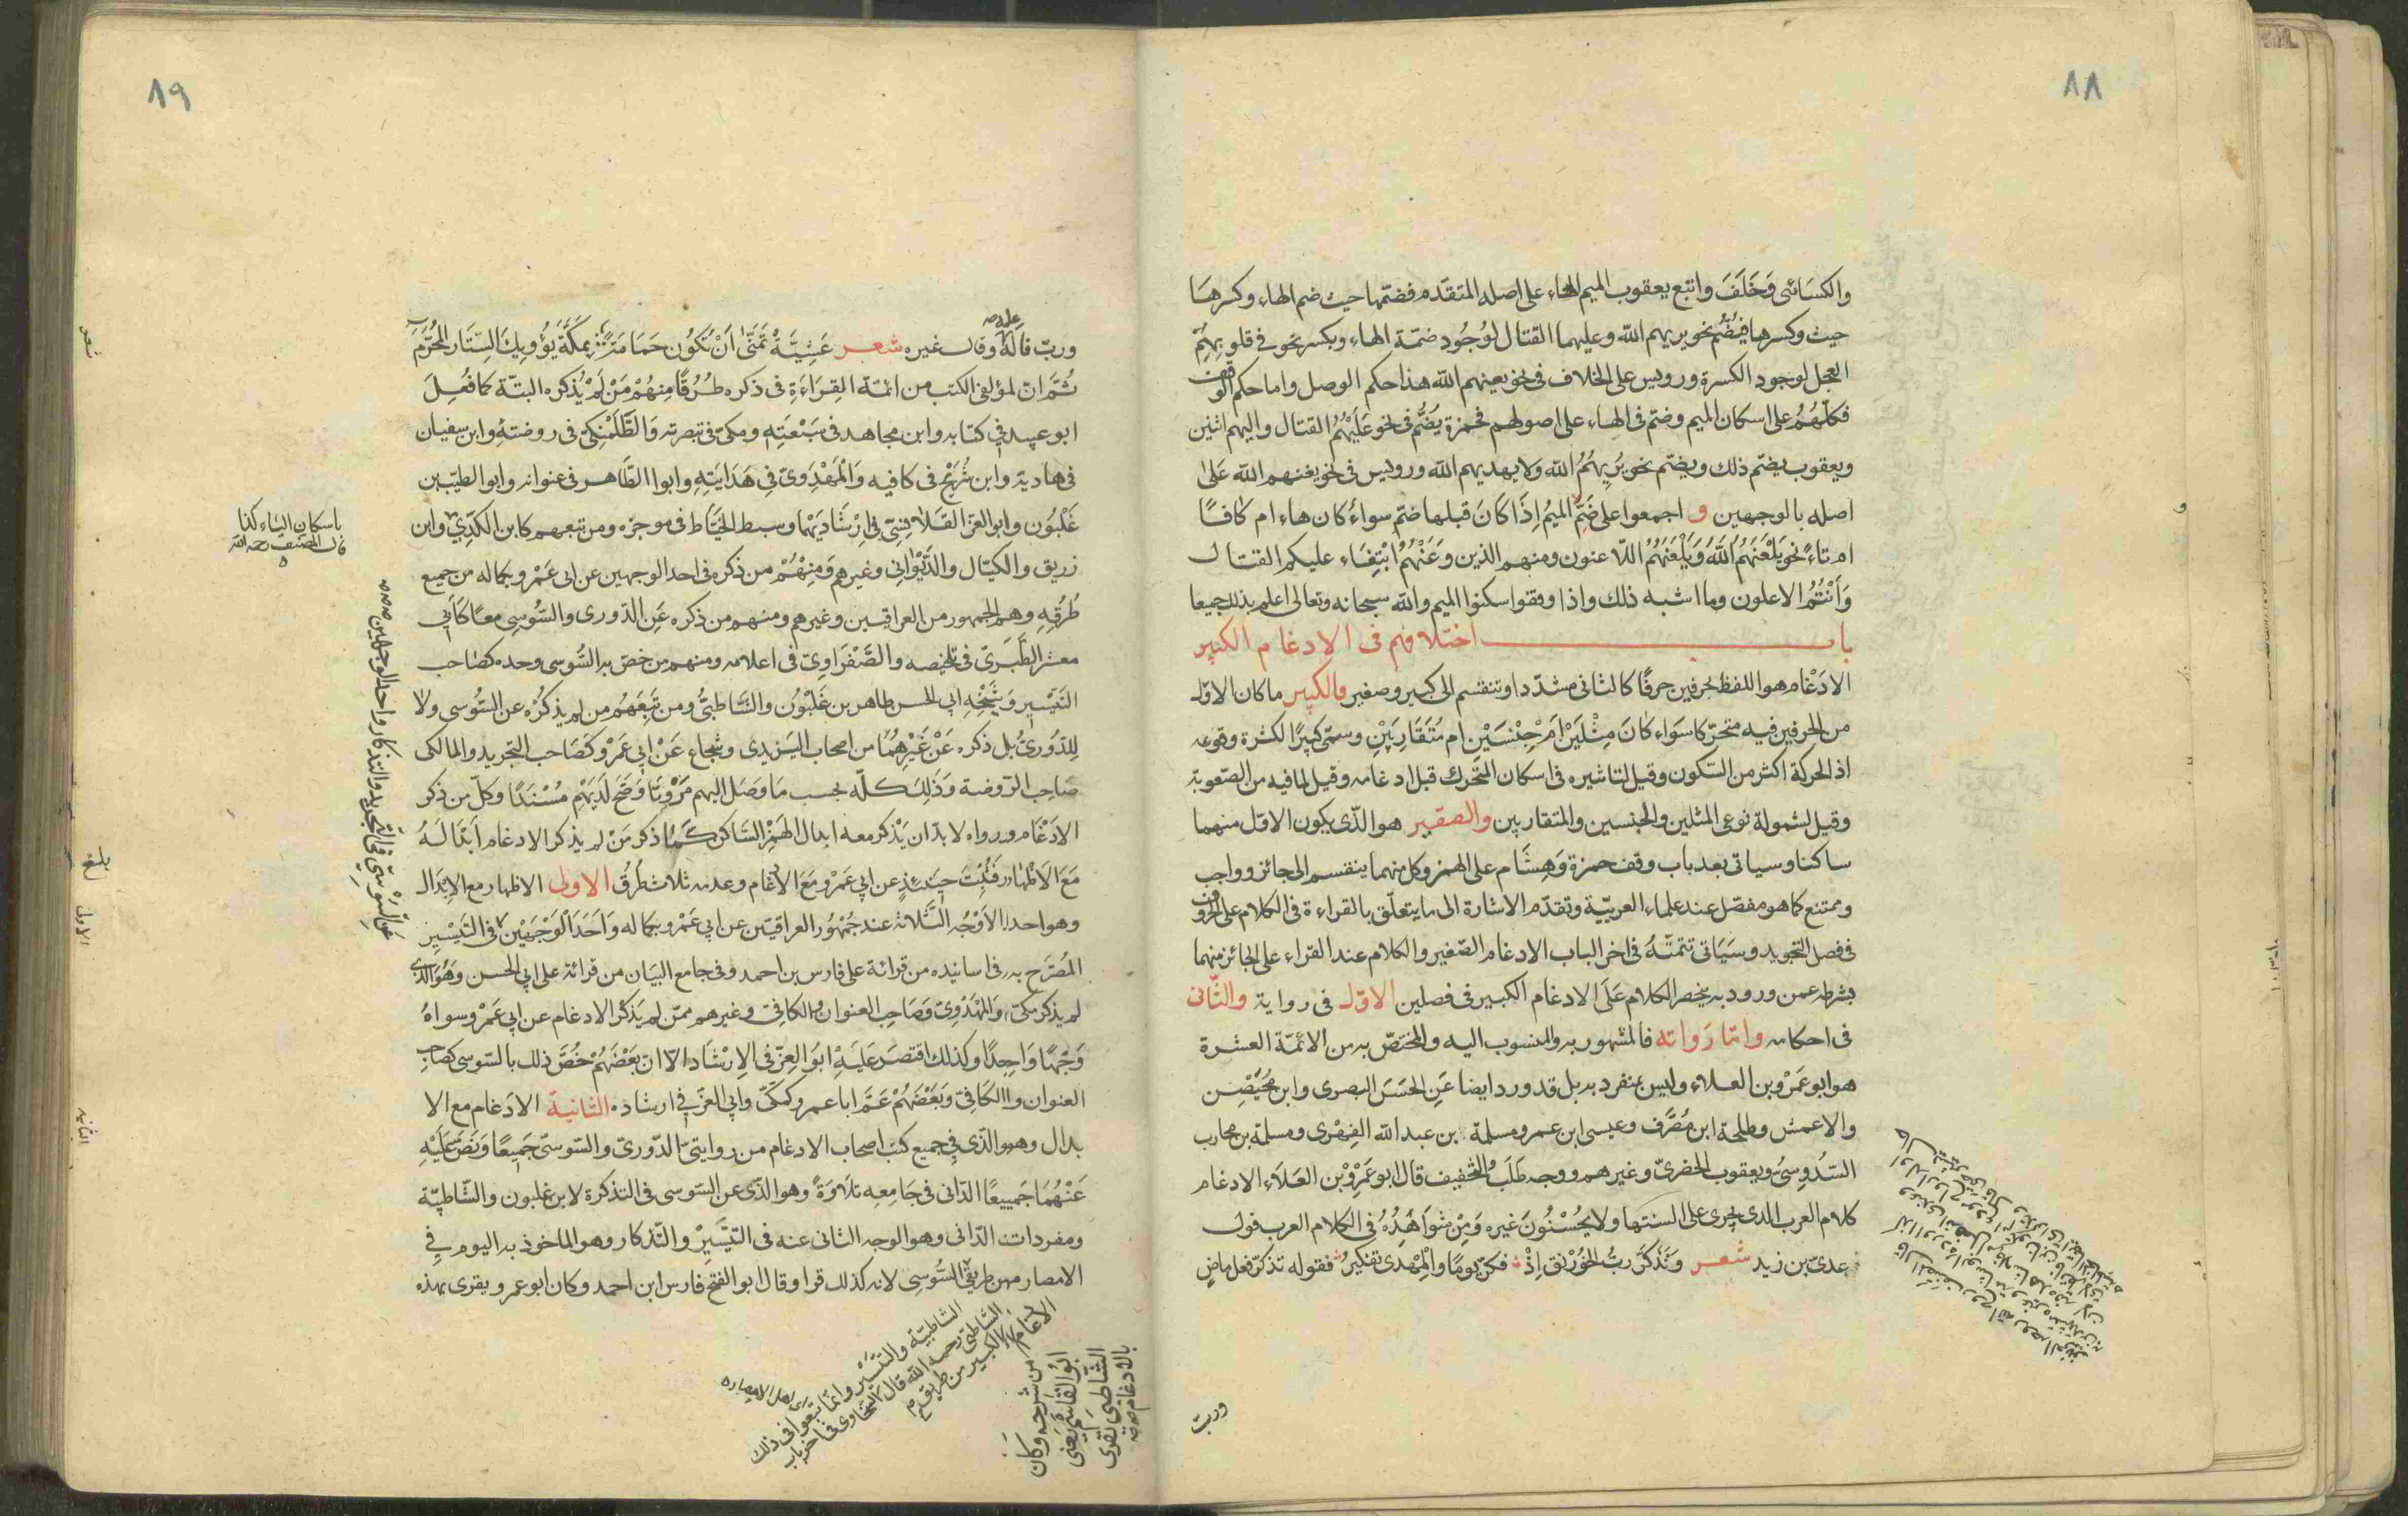 ٨٨
والكسائى وَخَلَفَ واتبع يعقوب الميم الهاء على اصله المتقدم فضمّها حيث ضم الهاء وكسرها
حيث وكسرها فيُضُم نحو يريهم الله وعليهما القتال لوُجُودِ ضمّة الهاء وبكسر نحو فى قلوبِهِمُ
العجل لوجودِ الكسرة ورويس على الخلاف فى نحو يغنهم الله هذا حكم الوصل واما حكم الوقف
فكلّهُمُ على اسكان الميم وضتم فى الهاء على اصولهم فحمزة يَضُّم فى نحو عَلَيْهُمُ القتال واليهم اثنين
ويعقوب يضتم ذلك ويضتم نحو يَرِيهُمُ الله ولا يهديهم الله ورويس فى نحو يغنهم الله عَلىٰ
اصله بالوجهين و اجمعوا على ضَمِّ الميمُ اِذَا كَانَ قبلها ضتم سواءٌ كان هاء ام كافًا
ام تاءً نحو يَلْعَنَهُمُ اللهُ وَيَلْعَنَهُمُ اللّاعنون ومنهم الذين وَعَنْهُمُ ابْتِغَاء عليكم القتال
وَأَنْتُمُ الاعلون وما اشبه ذلك واذا وقفوا سكنوا الميم والله سبحانه وتعالى اعلم بذلك جميعا
باب اختلافهم فى الادغام الكبير
الادْغام هو اللفظ بحرفين حرفًا كالثانى مشدّدا وتنقسم الى كبير وصغير والكبير ما كان الاوّل
من الحرفين فيه متحرّكا سَوَاء كَانَ مِثْلَيْن اَمْ جِنْسَيْنِ ام مُتَقَارِبَيْنِ وسمّى كبيرًا لكثرة وقوعه
اذ الحركة اكثر من السّكون وقيل لتاثيره فى اسكان المتحرك قبل ادغامه وقيل لما فيه من الصّعوبة
وقيل لشمولة نوعى المثلين والجنسين والمتقاربين والصغير هو الذّى يكون الاوّل منهما
ساكنا وسياتى بعد باب وقف حمزة وَهِشَام على الهمز وكل منهما ينقسم الى جائز وواجب
وممتنع كما هو مفصّل عند علماء العربيّة وتقدّم الاشارة الى ما يتعلّق بالقراءة فى الكلام على الحروف
فى فصل التجويد وسَيَاتى تتمتّهُ فى اخر الباب الادغام الصّغير والكلام عند القراء على الجائز منهما
بشرطه عمن ورود به ينحصر الكلام عَلَى الادغام الكبير فى فصلين الاوّل فى رواية والثّانى
فى احكامه وامّا رَواته فالمشهور به والمنسوب اليه والمختصّ به من الائمّة العشرة
هو ابو عَمْرو بن العلاء وليس بمنفرد به بل قد ورد ايضا عَنِ الحَسَنَ البصرى وابن مُحَيْصِن
والاعمش وطلحة ابن مُصَّرَف وعيسى ابن عمر ومسلمة بن عبد الله الفِهْرى ومسلمة بن محارب
السَّدُوسِىُّ ويعقوب الحضرىّ وغيرهم ووجه طَلَبُ التخفيف قال ابو عَمْرُوْ بْن العَلَاء الادغام
كلام العرب الذى يجرى على السنتها ولا يحُسْنُونَ غيره وَمِنْ شَوَاهِدُهُ فى الكلام العرب قول
عدىّ بن زيد شعر وَتَذكَّر ربُّ الخُورْنَق اِذْ فكرّ يومًا والْمُهْدى تفكيرُ فقوله تذكرّ فعل ماضٍ
وربّ
٨٩
وربّ فاله وقال غيره شعر عَشِيَّةْ تَمَنّىٰ اَنْ تَكُون حَمَامَتَىٌ بِمَكَّةَ يُؤْويكَ السِّتَار المُحُرَّمَ
عليه صه
ثُمَّ انّ لمؤلفى الكتب من ائمّة القِرَاءَةِ فى ذكره طُرُقًا مِنهُمْ مَنْ لَمْ يُذكره البتّة كما فُعِلَ
ابو عبيد فِى كتابه وابن مجاهد فى سَبْعَتِهِ ومكى فى تبصرته وَالطَّلَمْنِكىّ فى روضتة وابن سفيان
فى هاديه وابن شُرَيْح فى كافيه وَالْمَهْدَوىّ فِى هَدَايَتِهِ وابو الطّاهر فى عنوانه وابو الطيّب بن
غَلْبُون وابو العز القَلَانِسِّى فِى اِرْشَاديْهما وسبط الخيَّاط فى موجزه ومن تبعهم كابن الكدّىِّ وابن
زريق والكمَال والدَّيْوانِى وغيرهم وَمِنْهُمْ من ذكره فى احد الوجهين عن ابى عَمْرو بكماله من جميع
طُرُقِهِ وهم الجمهور من العراقيين وغيرهم ومنهم من ذكره عَنِ الدّورى والسُّوسِى معًا كَاَبى
معشر الطَّبَرىّ فى تلخيصه والصَّفْرَاوِىّ فى اعلامه ومنهم من خصّ به السُّوسى وحده كصَاحب
التَّيْسِير وَشَيْخِهِ ابى الحسن طاهر بن غَلْبُون والشَّاطبىُّ ومن تَبِعَهُمُ من لم يذكرُه عن السُّوسى ولا
لِلدّوَرىُّ بل ذكره عَنْ غَيْرِهِمُا من اصحاب اليَزيدى وشجاع عَنْ ابى عَمْرو كَصَاحب التجريد والمالكى
صَاحِب الرّوضة وَذٰلِكَ كلّه بحسب مَا وصَل اليهم مَرْوِيًّا وَصَحَّ لَدَيْهِمِ مُسْنَدًا وكلّ من ذكر
الادْغَام ورواه لابدّ ان يَذْكر معه ابدال الهَمْز السَّاكن كَمُا ذكر مَنْ لم يذكر الادغام اَبْدَالَهُ
مَعَ الاَظْهَار فَثَبُتَ حِيَنئذٍ عن ابى عَمْرو مَعَ الادْغام وعدمه ثلاث طُرقُ الاولى الاظهار مع الابْدَال
وهو احد الاوَجُه الثّلاثة عند جمْهُور العراقيّين عن ابى عَمْرو بكماله وَاَحَدَ الْوَجْهَيْنِ فى التَيسْير
المُصَرّح به فى اسانيده من قرائة على فارس بن احمد وفى جامع البيَان من قرائة على ابى الحسن وَهُوَ الذى
لم يذكر مكىّ وَالمَهْدَوِىّ وَصَاحِب العنوان والكافِىّ وغيرهم ممّن لم يَذكرْ الادغام عن ابى عَمْرو سواهُ
وَجْهًا وَاحِدًا وكذلك اقتصَرَ عَلَيَهْ ابَو العِزّ فى الارشَاد الّا انّ بَعْضَهُمْ خُصَّ ذلك بالسّوسى كصَاحِب
العنوان والكَافِىّ وَبَعْضَهُمْ عَمَّ ابا عمرو كمَكّىّ وابى العزّ فى ارشاده الثانية الادَغام مع الا
بدال وهو الذى فى جميع كتب اصحاب الادغام من روايتى الدّورىّ والسّوسىّ جَمِيعًا وَنَصَّ عَلَيْهِ
عَنْهُمَا جَمِيعًا الدّانى فى جَامِعِه تلَاوَةً وهو الذى عن السّوسى فى التذكرة لابن غلبون والشَّاطبيّة
ومفردات الدّانى وهو الوجه الثانى عنه فى التيَّسِيْر والتّذكار وهو الماخوذ به اليوم فِى
الامصار من طريق السُّوسِى لانه كذلك قرا وقال ابو الفتح فارس ابن احمد وكان ابو عمرو يقرى بهذه
باسكان الياء كذا
قال المصنف رحمه الله
عن السُّوْسِىّ فى التجريد والتذكار واحد الوجهين
الشاطبيّة والتيَسِّيْر وانّما تبعوا فى ذلك
الشاطبىّ رحمه الله قال السّخاوى فى اخر باب
الادغام الكبير من
من شرحه وكان
ابُو القاسم يَعنى
الشّاطِبى يَقرى
بالادغام
بلغ
الاول
الثانيه